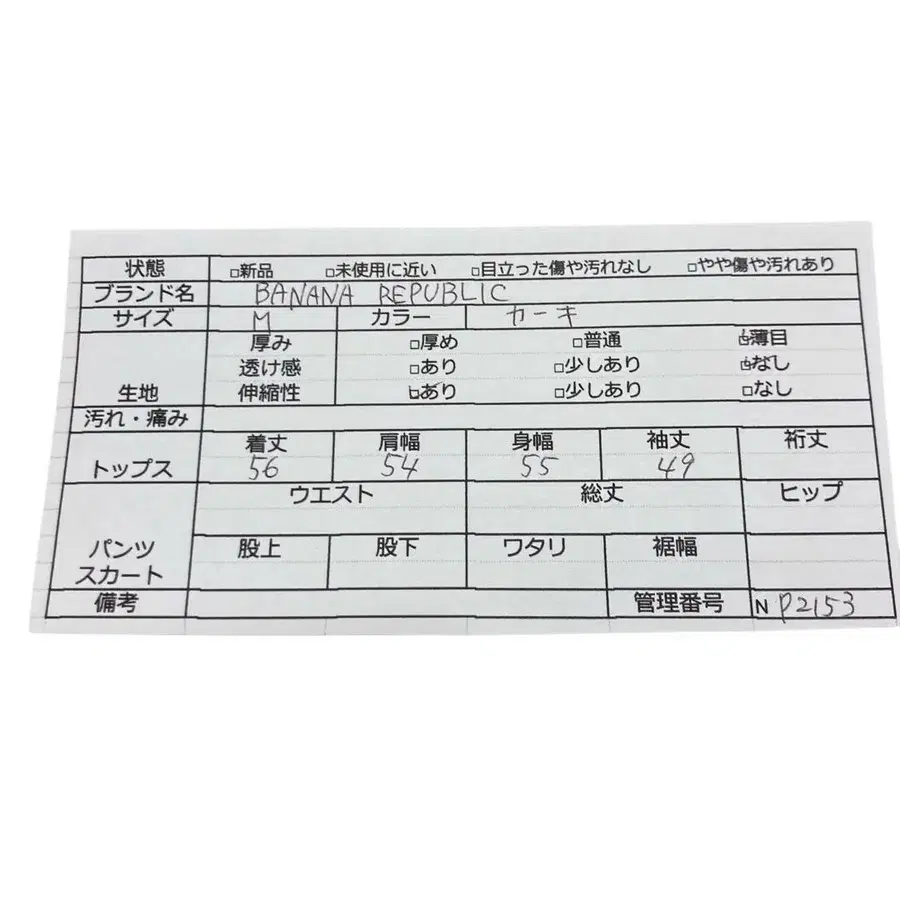 状態 □新品 □未使用に近い □目立った傷や汚れなし □やや傷や汚れあり
ブランド名 BANANA REPUBLIC
サイズ M カラー カーキ
厚み □厚め □普通 ☑薄目
透け感 □あり □少しあり ☑なし
生地 伸縮性 ☑あり □少しあり □なし
汚れ・痛み
着丈 肩幅 身幅 袖丈 裄丈
トップス 56 54 55 49
ウエスト 総丈 ヒップ
パンツ 股上 股下 ワタリ 裾幅
スカート
備考 管理番号 N P2153